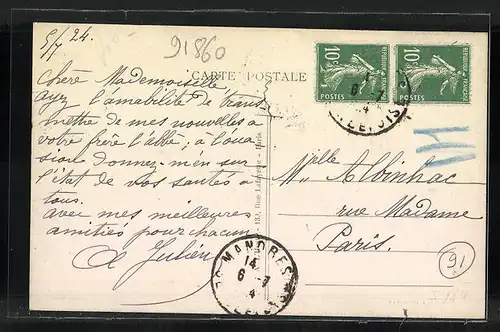 5/7 24.
91860
CARTE POSTALE
Chère Mademoiselle
Ayez l'amabilité de trans
mettre de mes nouvelles à
votre frère l'abbé, à l'occa
sion donnez-m'en sur
l'état de vos santés à
tous.
avec mes meilleures
amitiés pour chacun
A Julien
132, Rue Lafayette - Paris
10c
POSTES
10c
POSTES
Mlle Albinhac
rue Madame
Paris.
91
MANDRES
14
6 -7